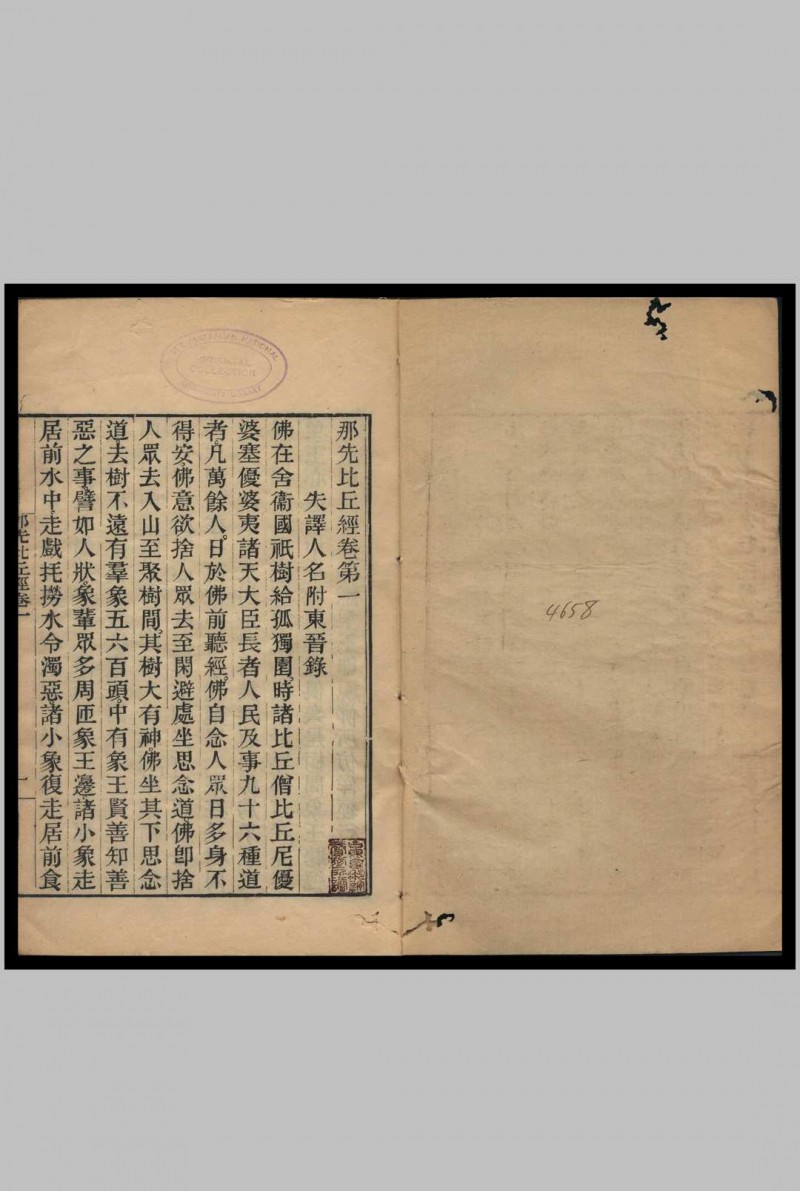 4658
那先比丘經卷第一
失譯人名附東晉錄
佛在舍衞國祇樹給孤獨園時諸比丘僧比丘尼優
婆塞優婆夷諸天大臣長者人民及事九十六種道
者凡萬餘人日於佛前聽經佛自念人眾日多身不
得安佛意欲捨人眾去至閑避處坐思念道佛卽捨
人眾去入山至聚樹間其樹大有神佛坐其下思念
道去樹不遠有羣象五六百頭中有象王賢善知善
惡之事譬如人狀象輩眾多周匝象王邊諸小象走
居前水中走戲扥撈水令濁惡諸小象復走居前食
那先比丘經卷一
一
NATIONAL
ORIENTAL
COLLECTION